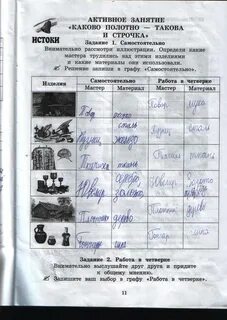 АКТИВНОЕ ЗАНЯТИЕ
«КАКОВО ПОЛОТНО – ТАКОВА
И СТРОЧКА»
ИСТОКИ
Задание 1. Самостоятельно
Внимательно рассмотри иллюстрации. Определи какие
мастера трудились над этими изделиями
и какие материалы они использовали.
Решение запиши в графу «Самостоятельно».
Изделия Самостоятельно Работа в четверке
Мастер Материал Мастер Материал
Повар Повар
сталь
Кузнец железо сталь
Ткачиха ткань ткань
Ювелир золото Ювелир
Плотник дерево дерево
Гончар глина Гончар глина
Задание 2. Работа в четверке
Внимательно выслушайте друг друга и придите
к общему мнению.
Запишите ваш выбор в графу «Работа в четверке».
11